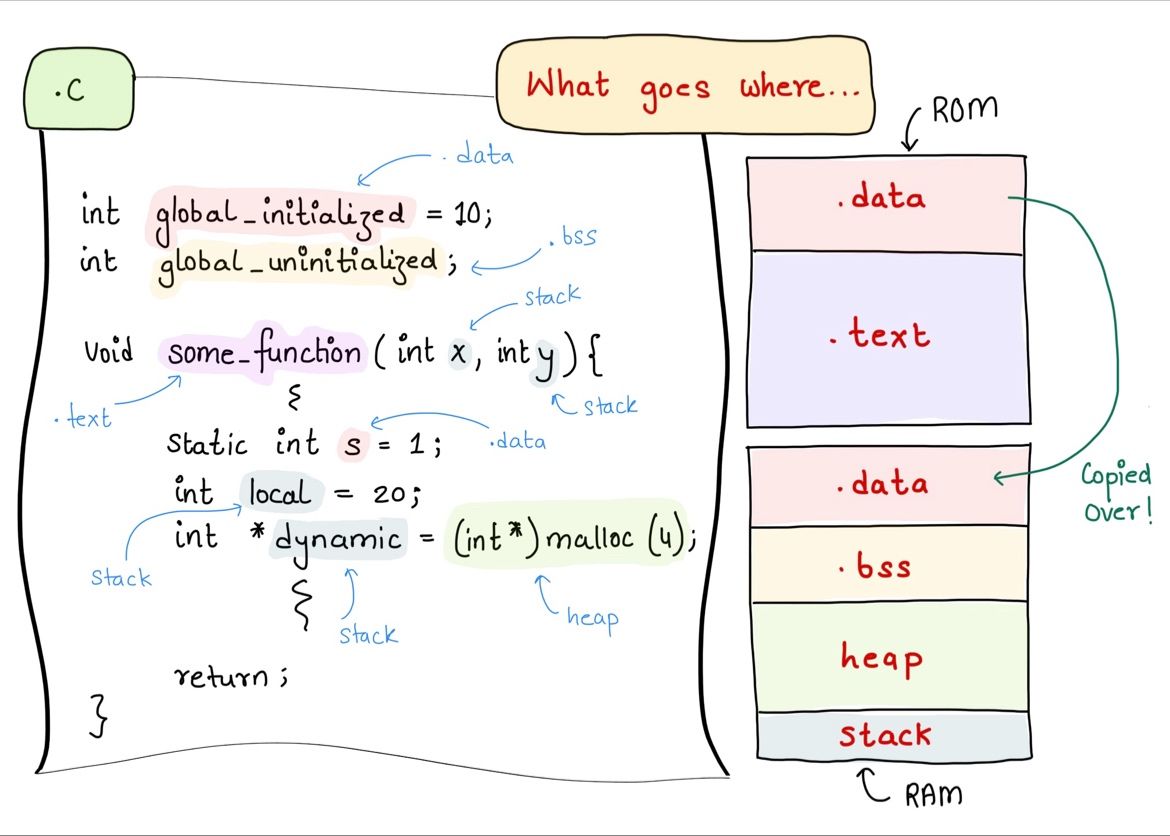 .C
What goes where...
.data
int global_initialized = 10;
.bss
int global_uninitialized;
stack
void some_function (int x, int y) {
.text
stack
static int s = 1;
.data
int local = 20;
int *dynamic = (int*) malloc (4);
stack
stack
heap
return;
}
ROM
.data
.text
.data
Copied
over!
.bss
heap
stack
RAM